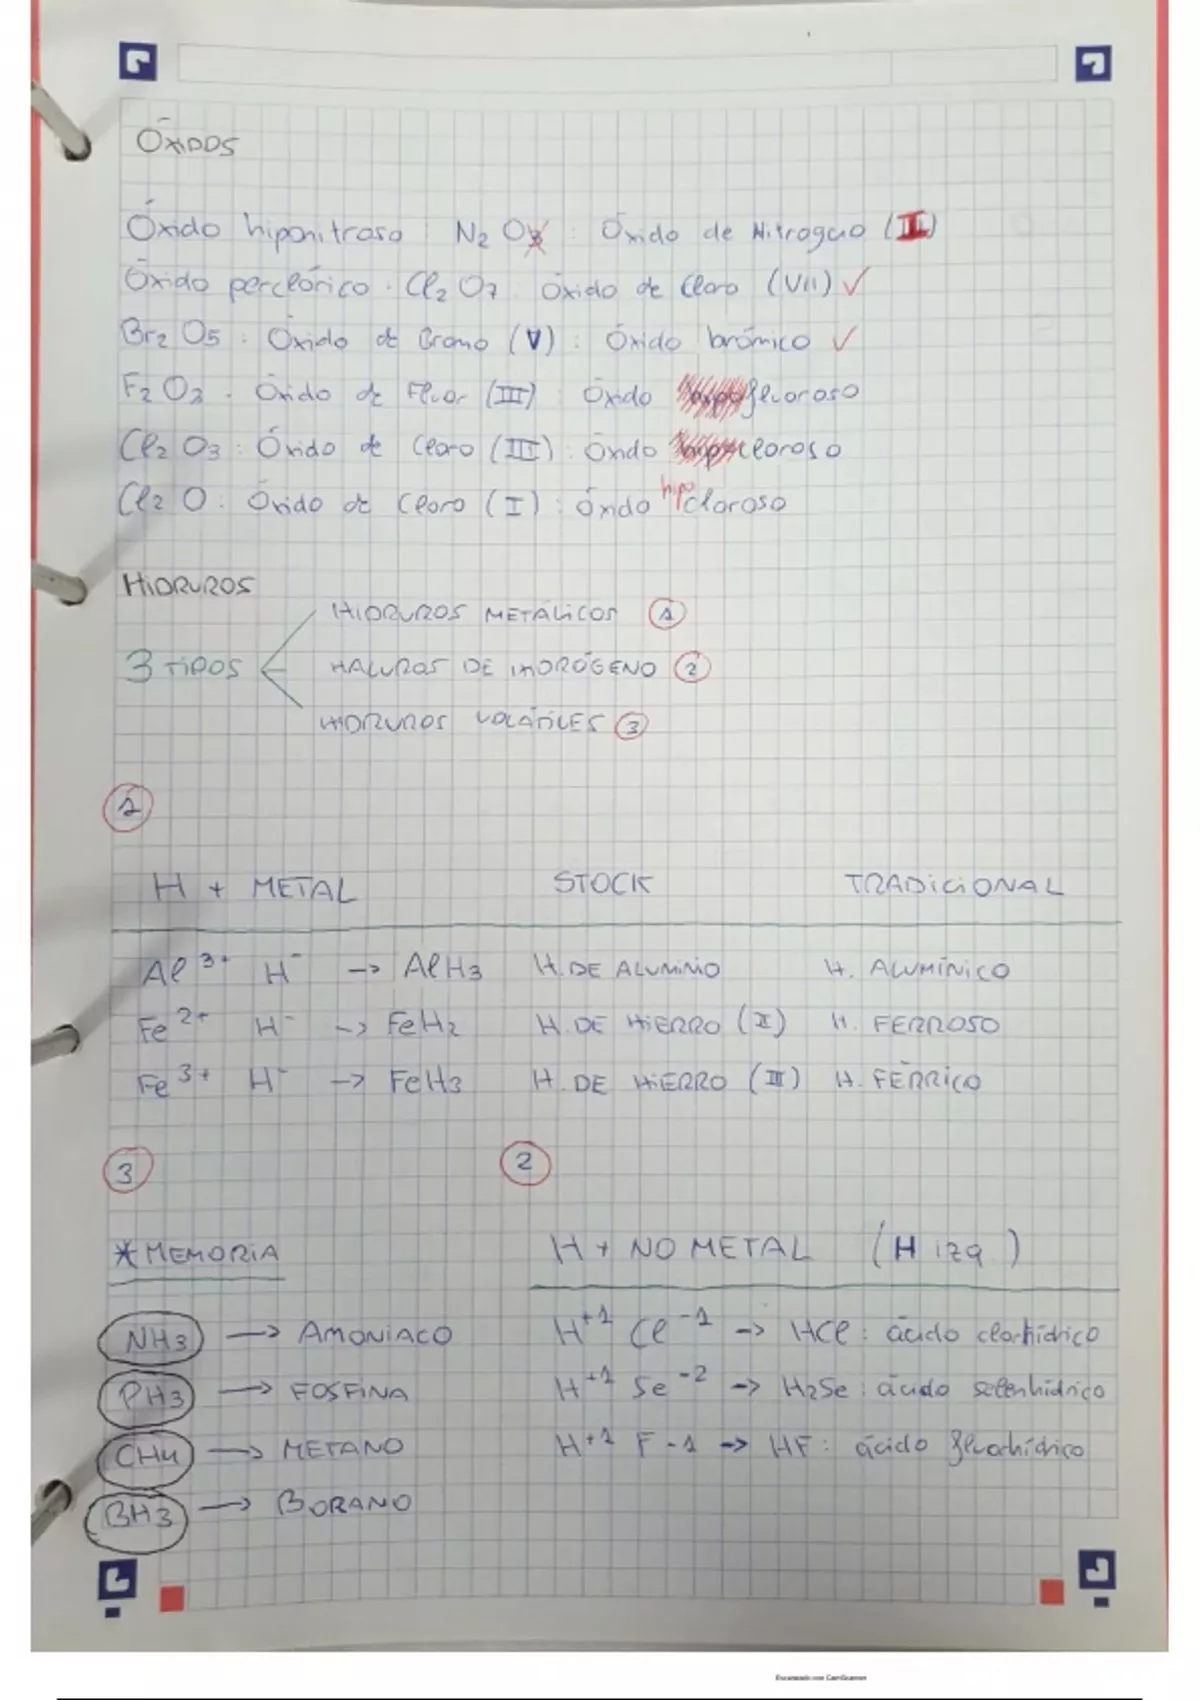 ÓXIDOS
Óxido hiponitroso : N2 O : Óxido de Nitrógeno (II)
Óxido perclórico . Cl2 O7 Óxido de Cloro (VII) ✓
Br2 O5 : Óxido de Bromo (V) : Óxido brómico ✓
F2 O3 . Óxido de Fluor (III) : Óxido fluoroso
Cl2 O3 : Óxido de Cloro (III) : Óxido cloroso
Cl2 O : Óxido de Cloro (I) : Óxido hipocloroso
HIDRUROS
HIDRUROS METÁLICOS 1
3 TIPOS HALUROS DE HIDRÓGENO 2
HIDRUROS VOLÁTILES 3
1
H + METAL STOCK TRADICIONAL
Al 3+ H - -> AlH3 H. DE ALUMINIO H. ALUMÍNICO
Fe 2+ H - -> FeH2 H. DE HIERRO (II) H. FERROSO
Fe 3+ H - -> FeH3 H. DE HIERRO (III) H. FÉRRICO
3 2
*MEMORIA H + NO METAL (H izq.)
NH3 -> AMONIACO H+1 Cl -1 -> HCl : ácido clorhídrico
PH3 -> FOSFINA H+1 Se -2 -> H2Se : ácido selenhídrico
CH4 -> METANO H+1 F -1 -> HF : ácido fluorhídrico
BH3 -> BORANO
Escaneado con CamScanner